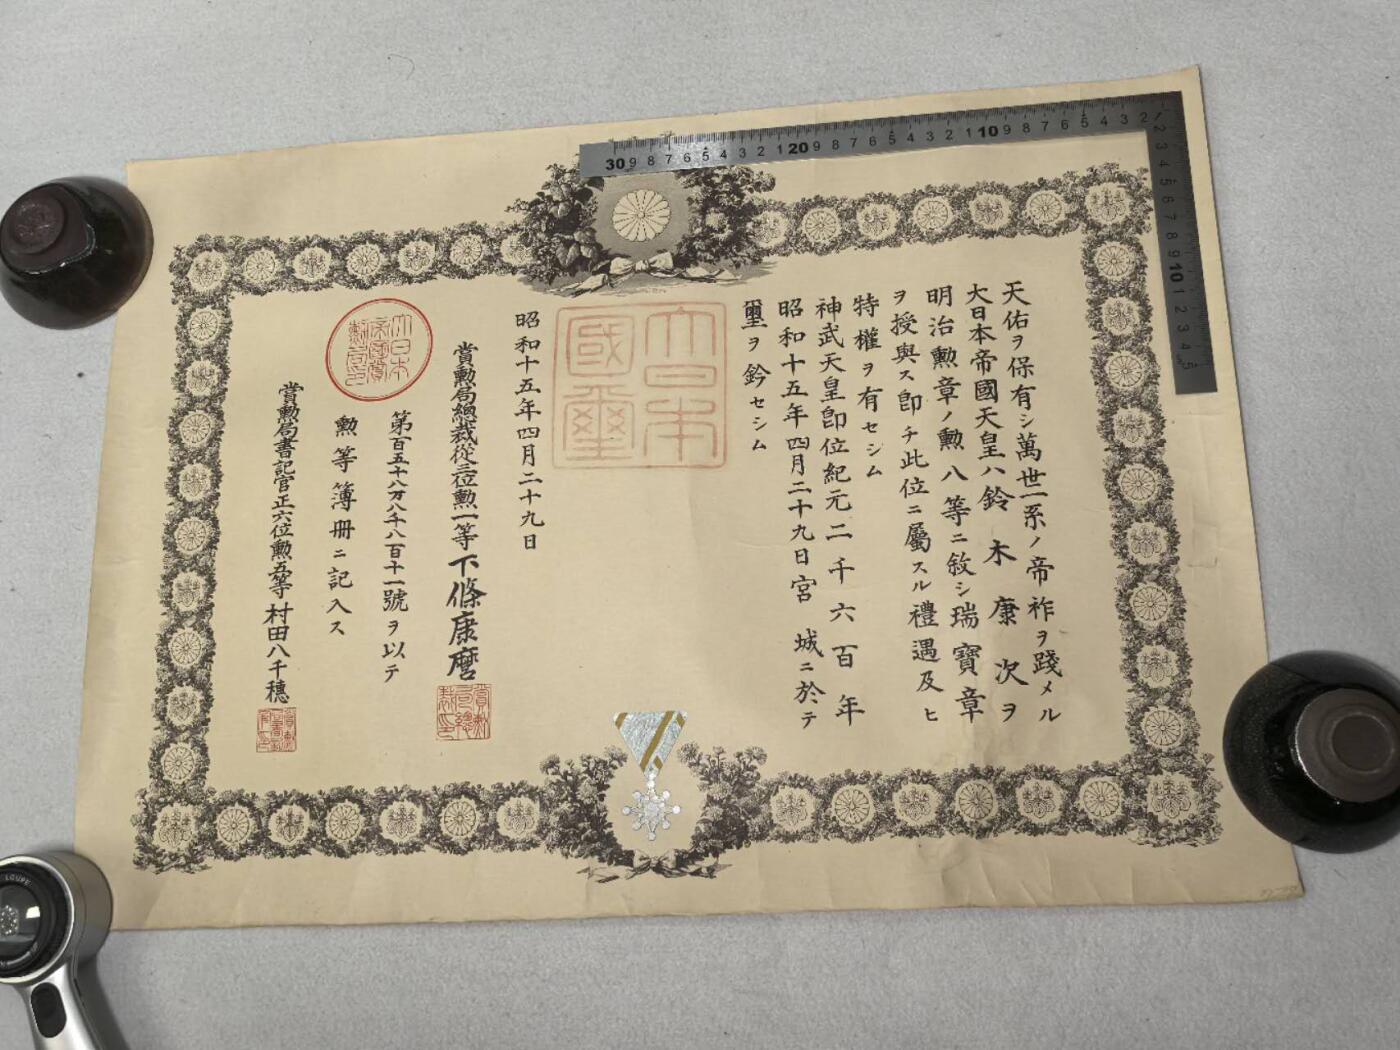 天佑ヲ保有シ萬世一系ノ帝祚ヲ踐メル
大日本帝國天皇ハ鈴木康次ヲ
明治勲章ノ勲八等ニ敍シ瑞寶章
ヲ授與ス卽チ此位ニ屬スル禮遇及ヒ
特權ヲ有セシム
神武天皇卽位紀元二千六百年
昭和十五年四月二十九日宮城ニ於テ
璽ヲ鈐セシム
大日本國璽
昭和十五年四月二十九日
賞勲局總裁從三位勲一等下條康麿
賞勲局總裁印
第百五十八万八千八百十一號ヲ以テ
勲等簿册ニ記入ス
大日本帝國賞勲局印
賞勲局書記官正六位勲五等村田八千穗
30 9 8 7 6 5 4 3 2 1 20 9 8 7 6 5 4 3 2 1 10 9 8 7 6 5 4 3 2 1
2 3 4 5 6 7 8 9 10 1 2 3 4 5
LOUPE